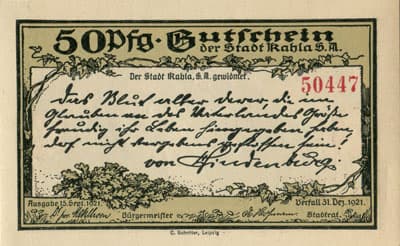 50 Pfg. Gutschein
der Stadt Kahla S.A.
Der Stadt Kahla, S.A. gewidmet.
50447
Das Blut aller derer, die im
Glauben an des Vaterlandes Größe
freudig ihr Leben hingegeben haben,
darf nicht vergebens geflossen sein!
von Hindenburg.
Ausgabe 15. Sept. 1921.
Verfall 31. Dez. 1921.
Bürgermeister
Stadtrat.
C. Schröter, Leipzig